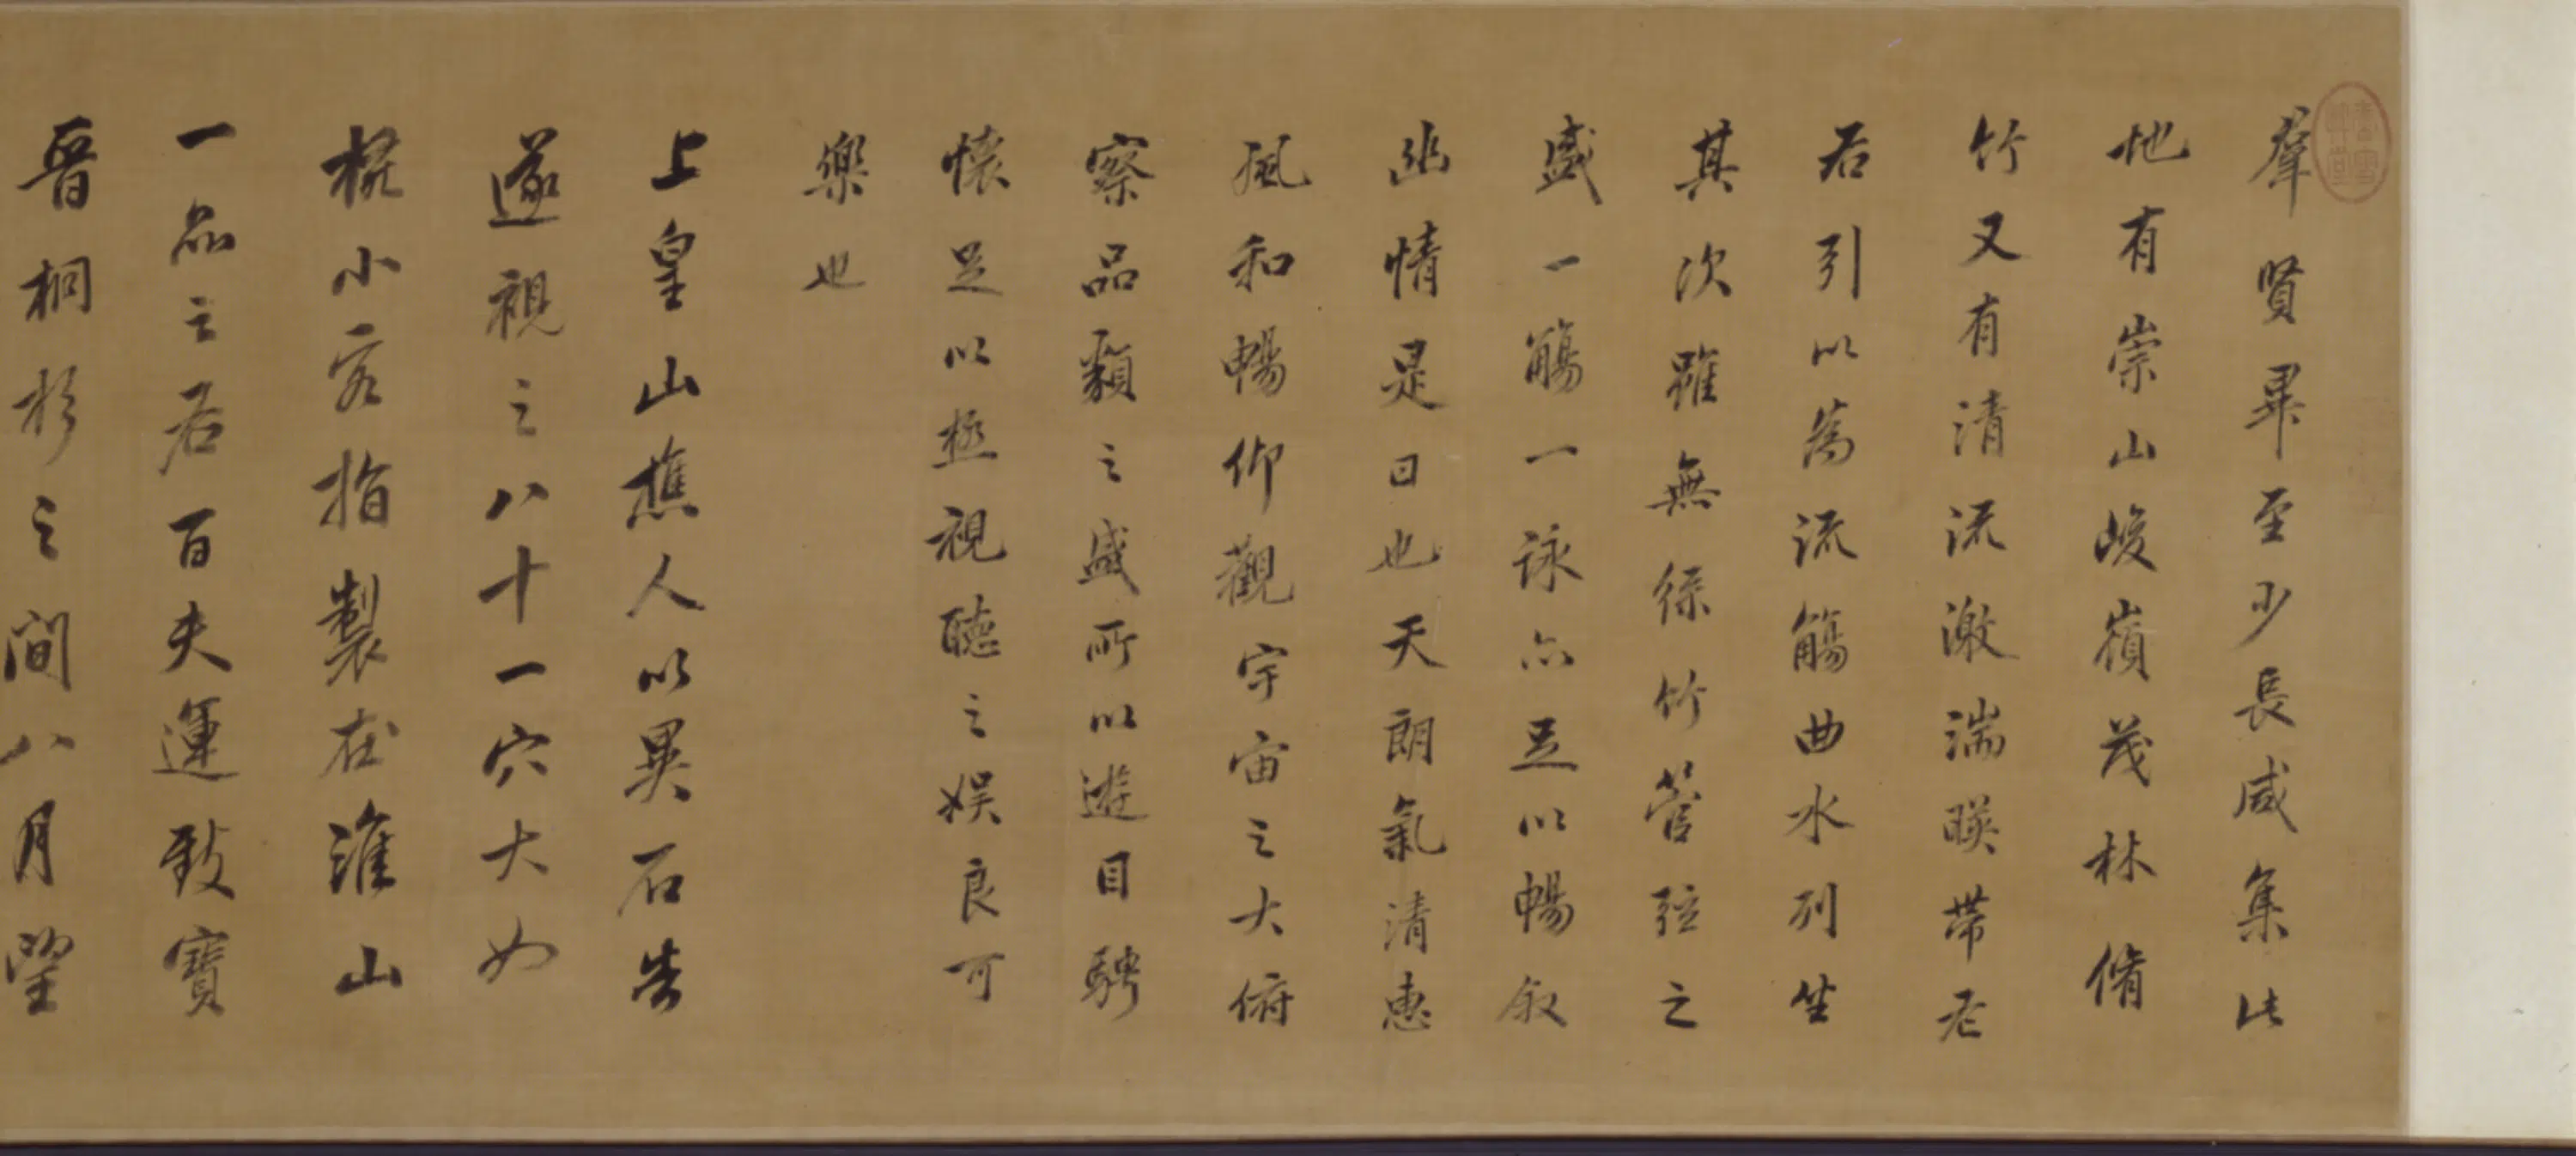 羣賢畢至少長咸集此
地有崇山峻嶺茂林脩
竹又有清流激湍暎帶左
右引以為流觴曲水列坐
其次雖無絲竹管弦之
盛一觴一詠亦足以暢叙
幽情是日也天朗氣清惠
風和暢仰觀宇宙之大俯
察品類之盛所以遊目騁
懷足以極視聽之娛良可
樂也
上皇山樵人以異石告
遂視之八十一穴大如
椀小容指製在淮山
一品之右百夫運致寶
晉桐杉之間八月望